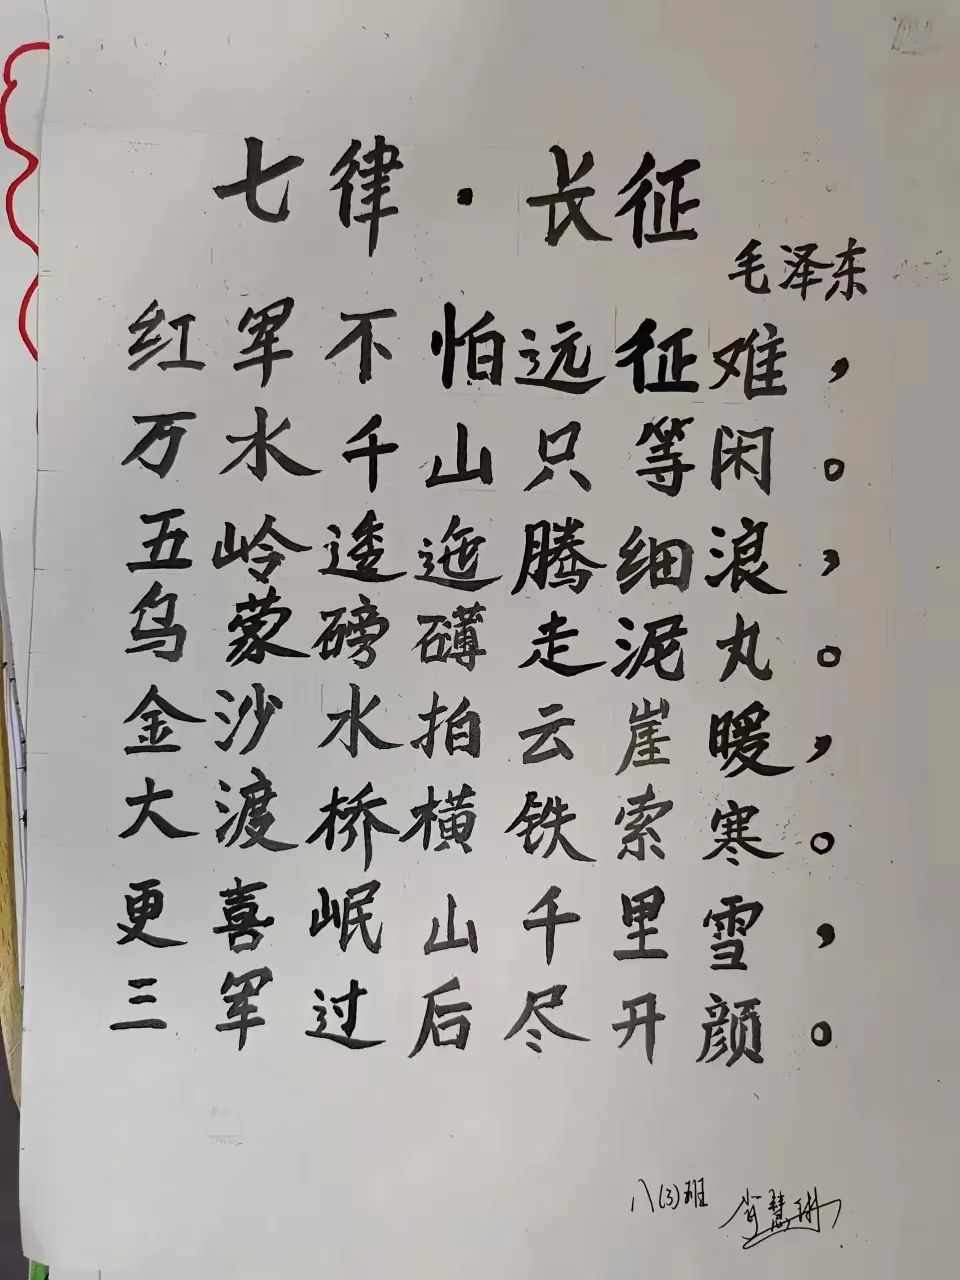 七律·长征
毛泽东
红军不怕远征难，
万水千山只等闲。
五岭逶迤腾细浪，
乌蒙磅礴走泥丸。
金沙水拍云崖暖，
大渡桥横铁索寒。
更喜岷山千里雪，
三军过后尽开颜。
八(3)班 肖慧琳